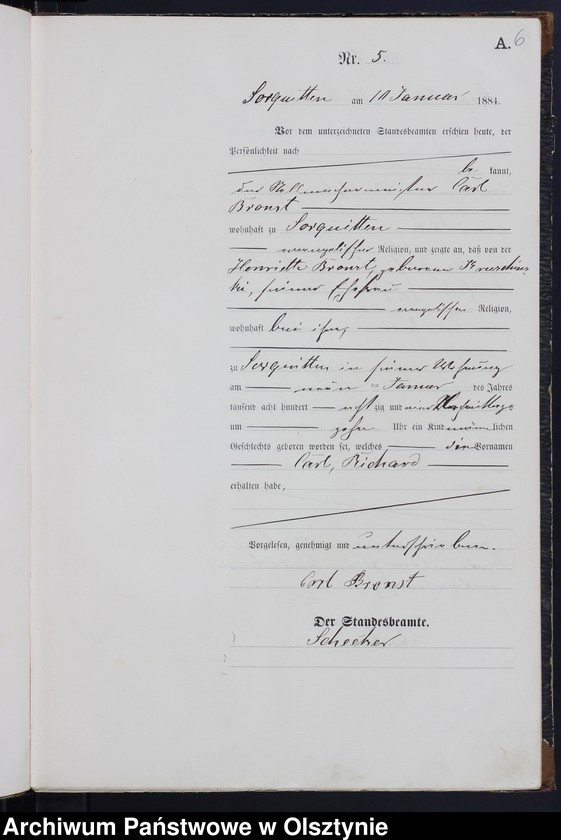 A. 6
Nr. 5.
Sorquitten am 10 Januar 1884.
Vor dem unterzeichneten Standesbeamten erschien heute, der
Persönlichkeit nach
be kannt,
der Stellmachermeister Carl
Bronst
wohnhaft zu Sorquitten
evangelischer Religion, und zeigte an, daß von der
Henriette Bronst, geborenen
ki, seiner Ehefrau
evangelischer Religion,
wohnhaft bei ihm,
zu Sorquitten in seiner Wohnung
am neun ten Januar des Jahres
tausend acht hundert acht zig und vier Nachmittags
um zehn Uhr ein Kind männlichen
Geschlechts geboren worden sei, welches die Vornamen
Carl, Richard
erhalten habe,
Vorgelesen, genehmigt und unterschrieben.
Carl Bronst
Der Standesbeamte.
Archiwum Państwowe w Olsztynie